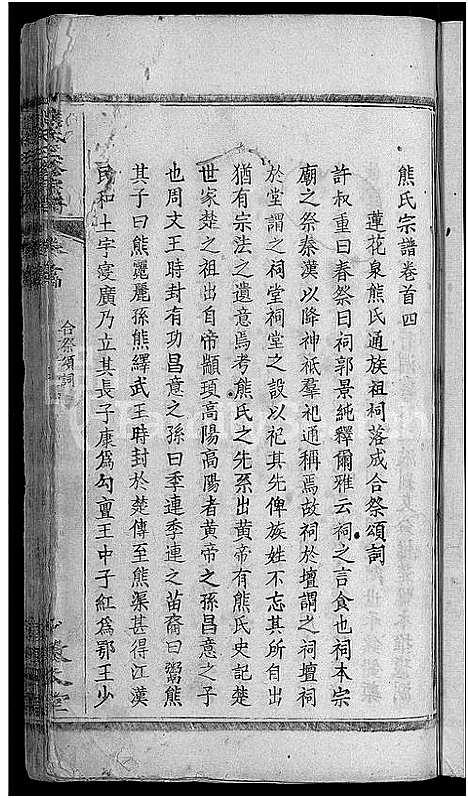 熊氏宗譜卷首四
蓮花泉熊氏通族祖祠落成合祭頌詞
許叔重曰春祭曰祠郭景純釋爾雅云祠之言食也祠本宗
廟之祭秦漢以降神祇羣祀通稱焉故祠於壇謂之祠壇祠
於堂謂之祠堂祠堂之設以祀其先俾族姓不忘其所自出
猶有宗法之遺意焉考熊氏之先系出黃帝有熊氏史記楚
世家楚之祖出自帝顓頊高陽高陽者黃帝之孫昌意之子
也周文王時封有功昌意之孫曰季連季連之苗裔曰鬻熊
其子曰熊麗麗孫熊繹武王時封於楚傳至熊渠甚得江漢
民和土宇寖廣乃立其長子康爲勾亶王中子紅爲鄂王少
合祭頌詞